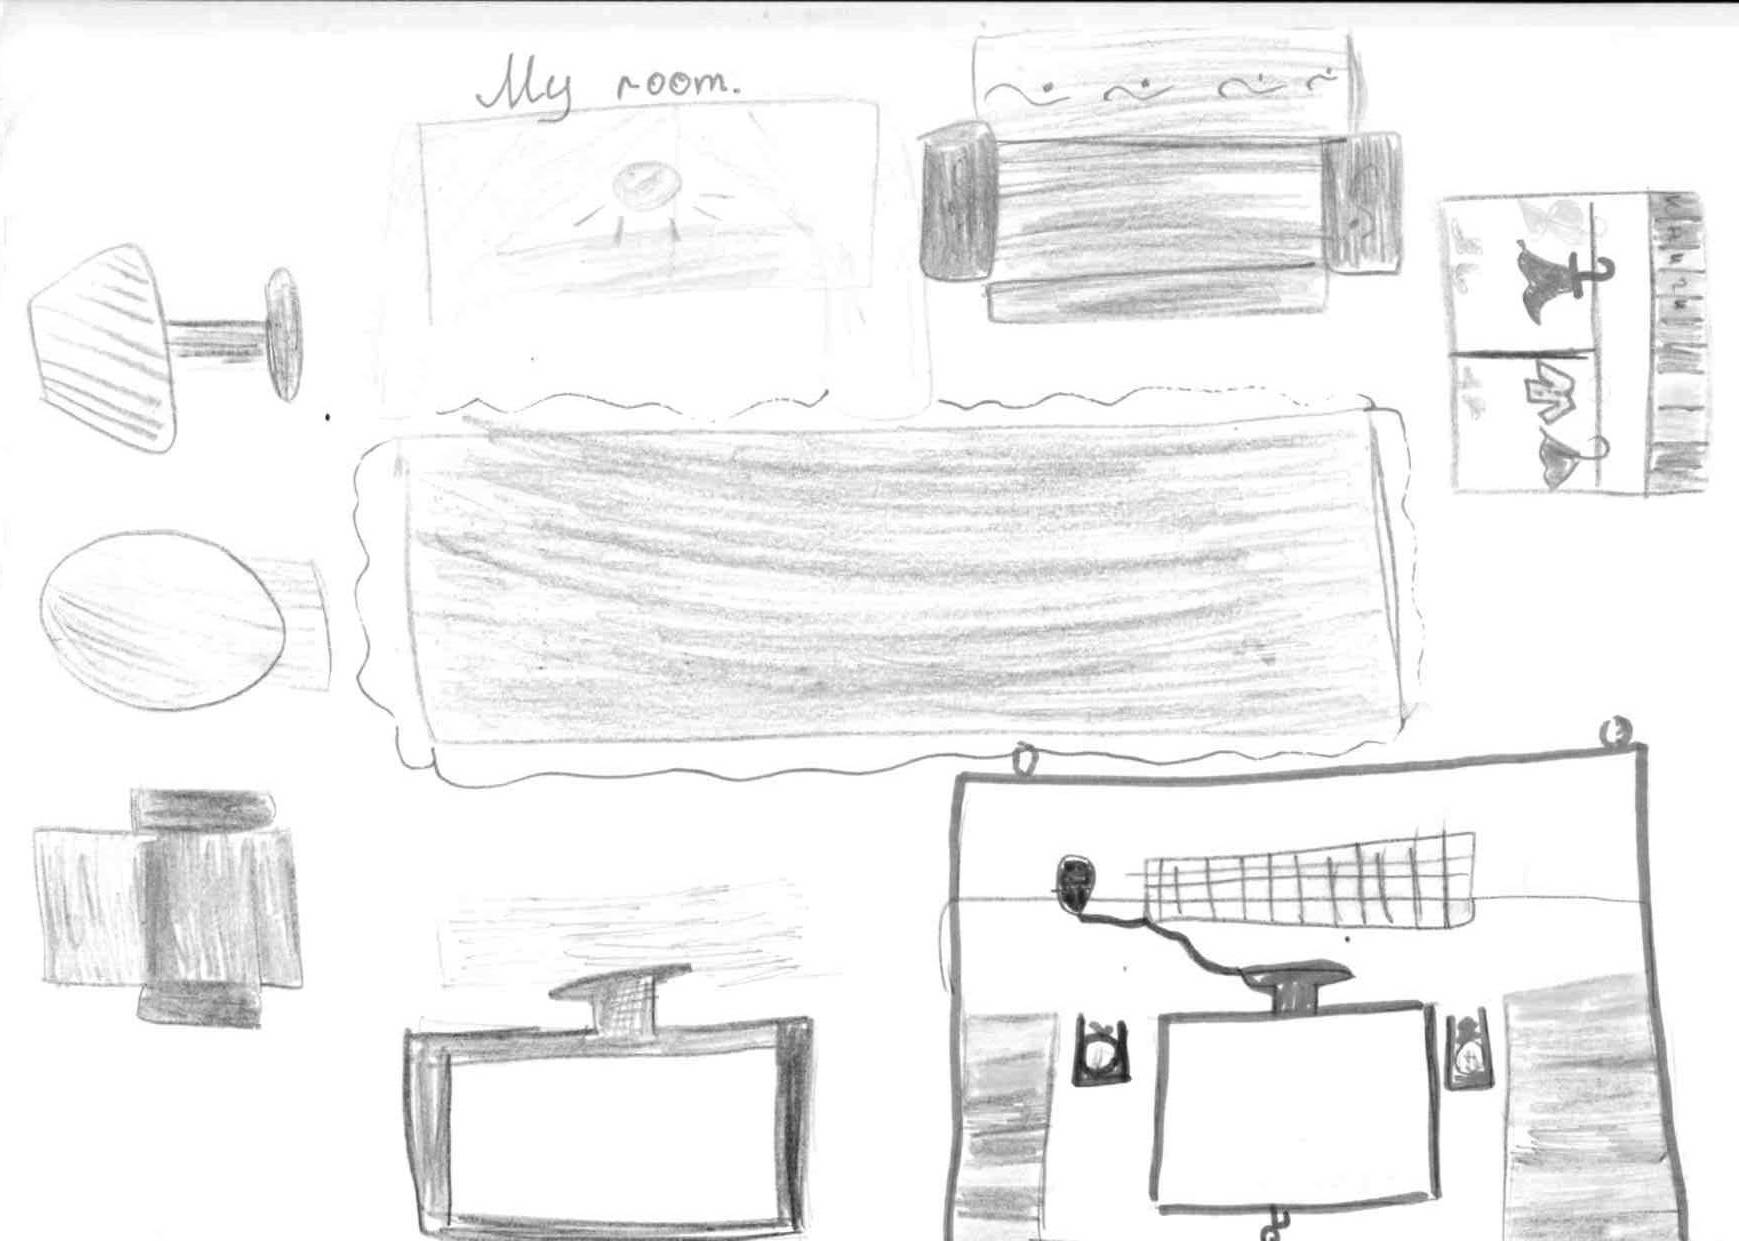 My room.